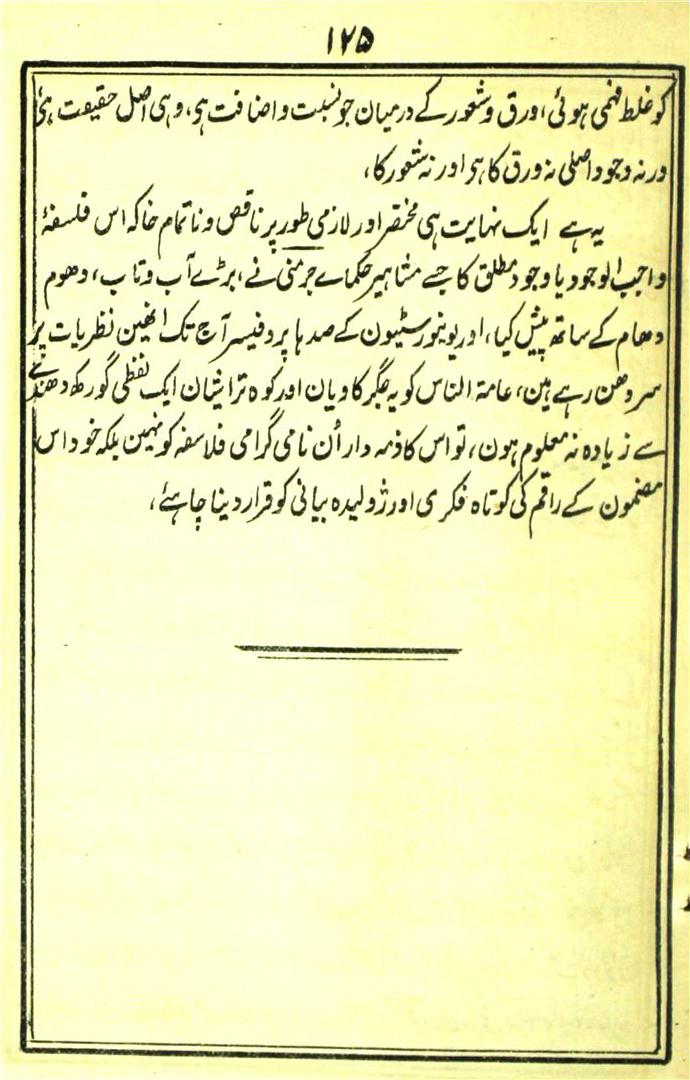 ۱۲۵
کو غلط فہمی ہوئی، ورق و شعور کے درمیان جو نسبت و اضافت ہی، وہی اصل حقیقت ہئ
ورنہ وجود اصلی نہ ورق کا ہی اور نہ شعور کا،
یہ ہے ایک نہایت ہی مختصر اور لازمی طور پر ناقص و ناتمام خاکہ اس فلسفۂ
واجب الوجود یا وجود مطلق کا جسے مشاہیر حکماے جرمنی نے، بڑے آب و تاب، دھوم
دھام کے ساتھ پیش کیا، اور یونیورسٹیون کے صدہا پروفیسر آج تک انھین نظریات پر
سر دھن رہے ہین، عامۃ الناس کو یہ جگر کاویان اور کوہ تراشیان ایک لفظی گورکھ دھندے
سے زیادہ نہ معلوم ہون، تو اس کا ذمہ دار اُن نامی گرامی فلاسفہ کو نہین بلکہ خود اس
مضمون کے راقم کی کوتاہ فکری اور ژولیدہ بیانی کو قرار دینا چاہئے،